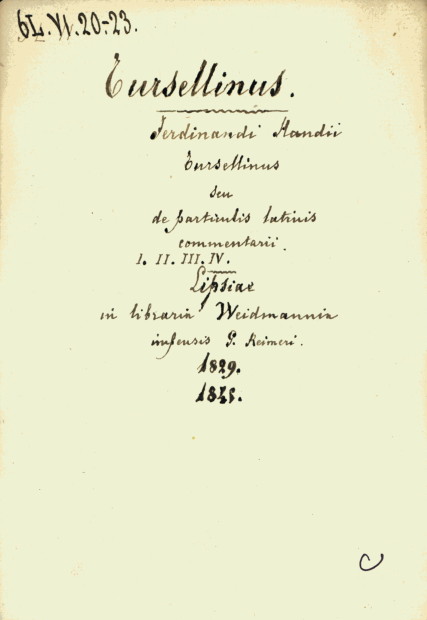 6L. VI. 20-23.
Tursellinus.
Ferdinandi Handii
Tursellinus
seu
de particulis latinis
commentarii.
I. II. III. IV.
Lipsiae
in libraria Weidmannia
impensis G. Reimeri.
1829.
1845.
C